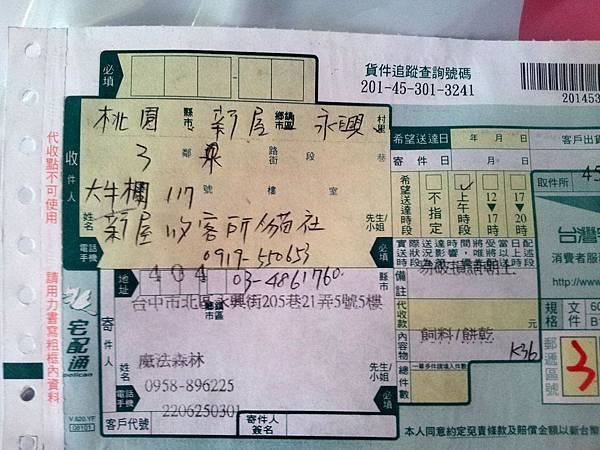 必填
貨件追蹤查詢號碼
201-45-301-3241
201453
桃園 縣市 新屋 鄉鎮市區 永興 村里
3 鄰 東 路街 段 巷
大牛欄 117 號 樓 室
收件人
姓名 新屋收容所 貓社 先生/小姐
電話 手機 0919-550653 必填
03-4861760
代收點不可使用
請用力書寫粗框內資料
希望送達日 年 月 日
寄件 年 月 日
客戶出貨
希望送達時段
不指定
上午時段
12-17時
17-20時
取件所 45
地址 404
台中市北區永興街205巷21弄5號5樓
寄件人
姓名 魔法森林 先生/小姐
電話 手機 0958-896225
2206250301 必填
客戶代號
寄件人簽名
備註 易破損請朝上
代收款 元
內容物 飼料/餅乾
K36
總件數
一單多件請填入件數
台灣宅
消費者服
http://www
規格
郵遞區號 3
宅配通
pelican
V.820.YF
本人同意約定免責條款及賠償金額以新台幣